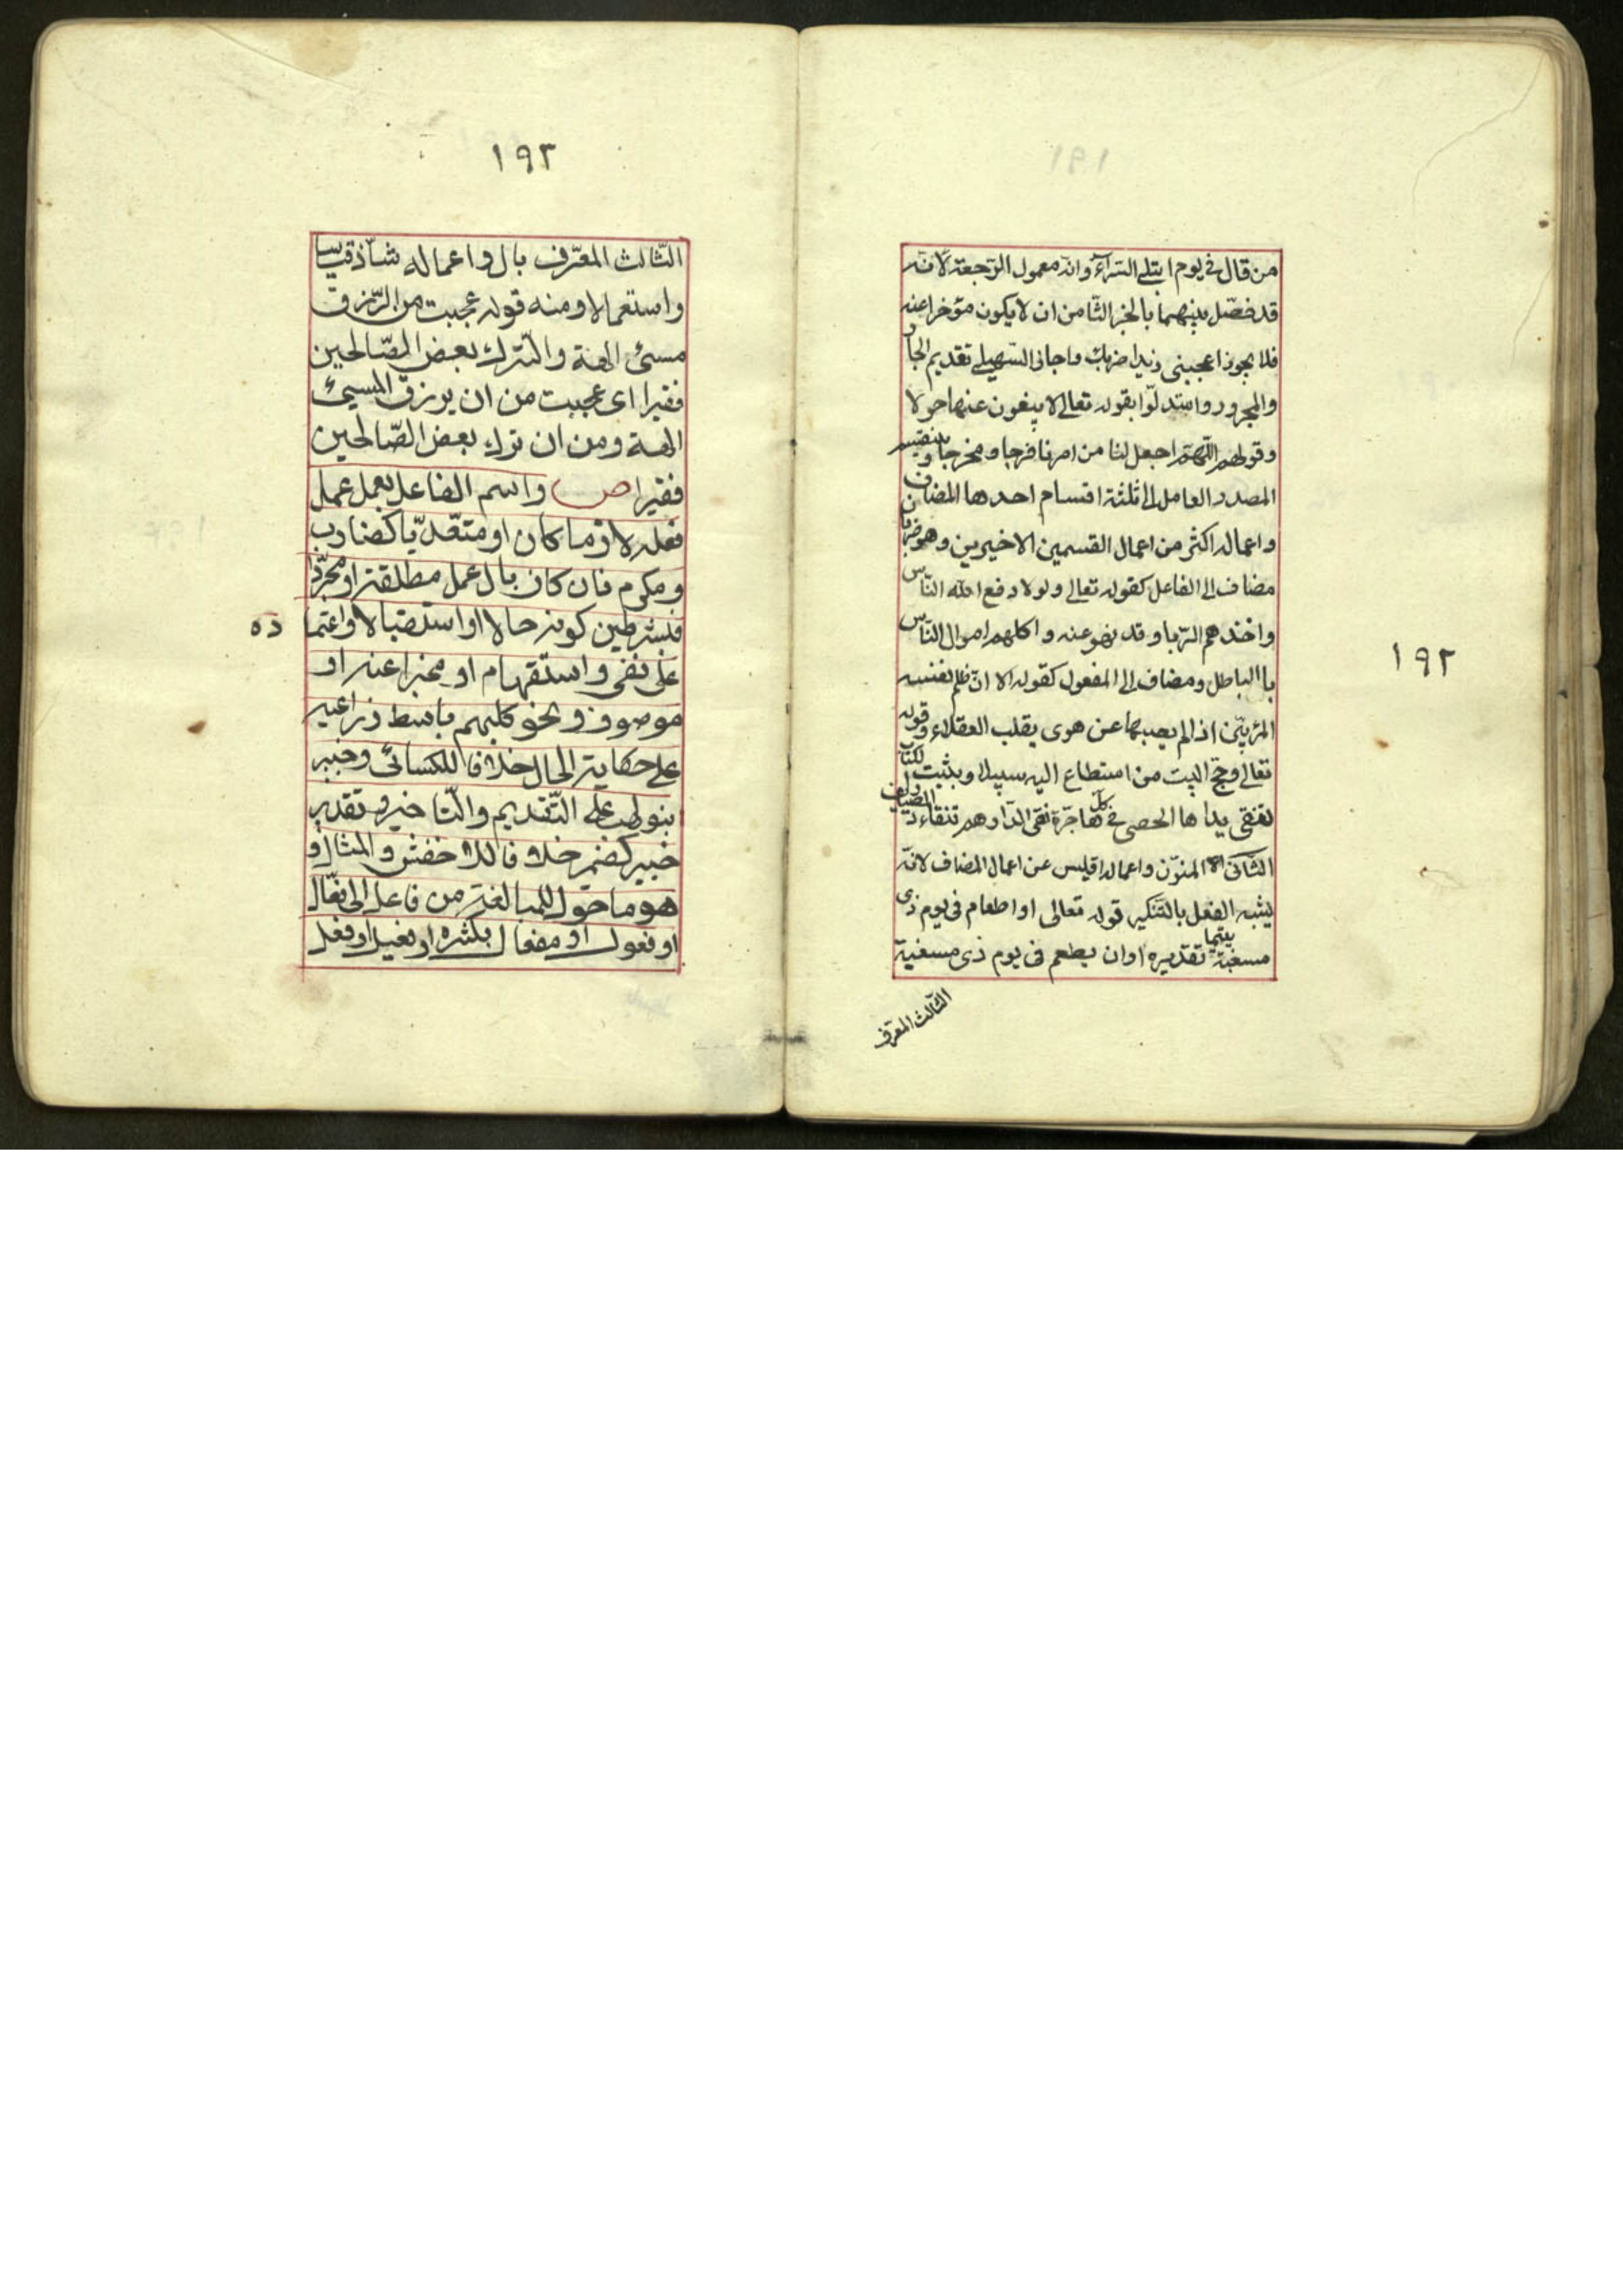 من قال في يوم ابتلي السرآء وانه معمول الرجعة لانه
قد فصل بينهما بالخبر الثامن ان لا يكون مؤخرا عنه
فلا يجوز اعجبني زيدا ضربك واجاز السهيلي تقديم الجار
والمجرور واستدلوا بقوله تعالى لا يبغون عنها حولا
وقولهم اللهم اجعل لنا من امرنا فرجا ومخرجا وينقسم
المصدر العامل الى ثلثة اقسام احدها المضاف
واعماله اكثر من اعمال القسمين الاخيرين وهو ضربان
مضاف الى الفاعل كقوله تعالى ولولا دفع الله الناس
واخذهم الربا وقد نهو عنه واكلهم اموال الناس
باالباطل ومضاف الى المفعول كقوله الا ان ظلم نفسه
المرء بين اذا لم يصبها عن هوى يقلب العقلاء وقوله
تعالى وحج البيت من استطاع اليه سبيلا وبيت الكتاب
تنفي يداها الحصى في كل هاجرة نفي الدراهم تنقاد الصياريف
الثاني المنون واعماله اقيس من اعمال المضاف لانه
يشبه الفعل بالتنكير قوله تعالى او اطعام في يوم ذي
مسغبة يتيما تقديره او ان يطعم في يوم ذي مسغبة
الثالث المعرف
١٩٢
١٩٣
الثالث المعرف بال واعماله شاذ قياسا
واستعمالا ومنه قوله عجبت من الرزق
مسئ الهة والترك بعض الصالحين
فقيرا اى عجبت من ان يرزق المسيئ
الهة ومن ان ترك بعض الصالحين
فقيرا ص واسم الفاعل يعمل عمل
فعله لازما كان او متعديا كضارب
ومكرم فان كان بال عمل مطلقة او مجردا
فبشرطين كونه حالا او استقبالا واعتما
ده
على نفي واستفهام او مخبرا عنه او
موصوف ونحو كلبهم باسط ذراعيه
على حكاية الحال خلافا للكسائى وخبير
بنو لهب على التقديم والتاخير وتقدير
خبير كضم خلافا للاخفش والمثال و
هو ما حول للمبالغة من فاعل الى فعال
او فعول او مفعال بكثره او فعيل او فعل